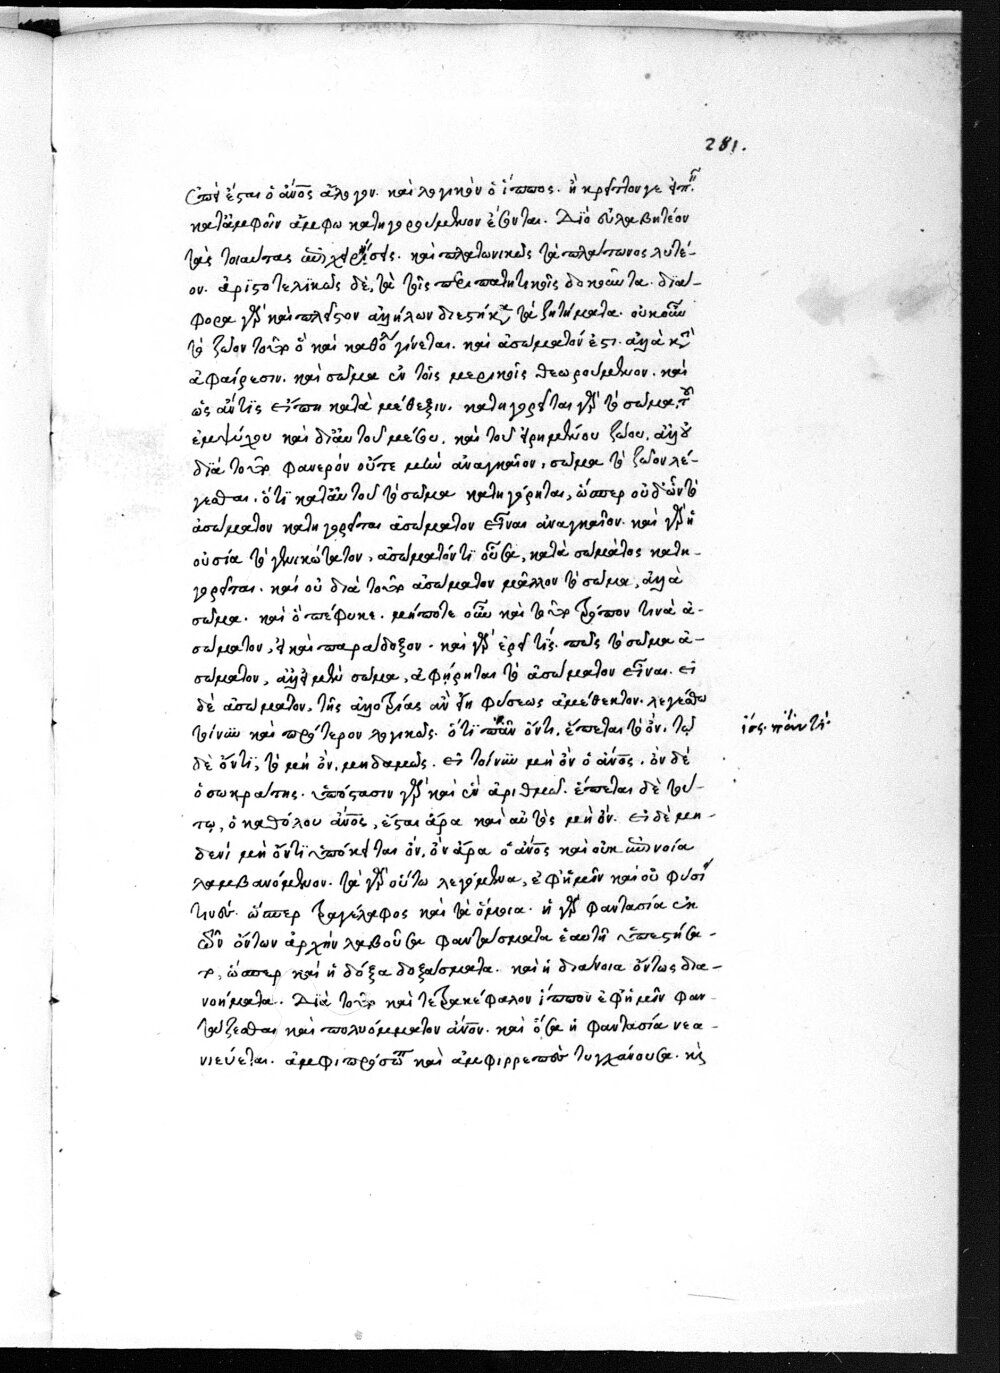 281.
ἔσται ὁ ἄνος ἄλογον. καὶ λογικὸν ὁ ἵππος. ἢ κρεῖττον γε
κατἄμφοῖν ἄμφω κατηγορούμενον ἔσονται. Διὸ εὐλαβητέον
τὰς τοιαύτας καὶ πλατωνικῶς τὰ πλάτωνος λυτέ-
ον. ἀριστοτελικῶς δὲ, τὰ τοῖς περιπατητικοῖς δοκοῦντα. διά-
φορα γὰρ καὶ πλεῖστον ἀλλήλων διεστηκότα τὰ ζητήματα. οὐκοῦν
τὸ ζῶον τοῦτο ὃ καὶ καθόλου γίνεται. καὶ ἀσώματόν ἐστι. ἀλλὰ κατ
ἀφαίρεσιν. καὶ σῶμα ἐν τοῖς μερικοῖς θεωρούμενον. καὶ
ὡς ἄν τις εἴποι κατὰ μέθεξιν. κατηγορεῖται γὰρ τὸ σῶμα τοῦ
ἐμψύχου καὶ διἀυτοῦ μέσου, καὶ τοῦ εἰρημένου ζώου. ἀλλ' οὐ
διὰ τοῦτο φανερὸν οὔτε μὴν ἀναγκαῖον, σῶμα τὸ ζῶον λέ-
γεσθαι. ὅτι κατἀυτοῦ τὸ σῶμα κατηγόρηται, ὥσπερ οὐδ' ὧν τὸ
ἀσώματον κατηγορεῖται ἀσώματον εἶναι ἀναγκαῖον. καὶ γὰρ ἡ
οὐσία τὸ γενικώτατον, ἀσώματόν τι οὖσα, κατὰ σώματος κατη-
γορεῖται. καὶ οὐ διὰ τοῦτο ἀσώματον μᾶλλον τὸ σῶμα, ἀλλὰ
σῶμα. καὶ ὃ πέφυκε. μήποτε οὖν καὶ τοῦτο τρόπον τινὰ ἀ-
σώματον, εἰ καὶ παράδοξον. καὶ γὰρ ἐρεῖ τίς. πῶς τὸ σῶμα ἀ-
σώματον, ἀλλ' εἰ μὲν σῶμα, ἀφῄρηται τὸ ἀσώματον εἶναι. εἰ
δὲ ἀσώματον, τῆς ἀλλοτρίας ἂν εἴη φύσεως ἀμέθεκτον. λεγέσθω
τοίνυν καὶ πρότερον λογικῶς. ὅτι πᾶν ὄντι, ἕπεται τὸ ὄν. τῷ
ἴσ. πάντι.
δὲ ὄντι, τὸ μὴ ὄν, μηδαμῶς. εἰ τοίνυν μὴ ὂν ὁ ἄνος, ὂν δὲ
ὁ σωκράτης. ὑπόστασιν γὰρ καὶ ἐν ἀριθμῷ. ἕπεται δὲ τού-
τῳ, ὁ καθόλου ἄνος, ἔσται ἄρα καὶ αὐτὸς μὴ ὄν. εἰ δὲ μη-
δενὶ μὴ ὄντι ὑπόκειται ὄν, ὂν ἄρα ὁ ἄνος καὶ οὐκ ἐπινοία
λαμβανόμενον. τὰ γὰρ οὕτω λεγόμενα, ἐφ' ἡμῖν καὶ οὐ φύσει
ὥσπερ τραγέλαφος καὶ τὰ ὅμοια. ἡ γὰρ φαντασία ἐκ
τῶν ὄντων ἀρχὴν λαβοῦσα φαντάσματα ἑαυτῇ ὑπεστήσα-
το, ὥσπερ καὶ ἡ δόξα δοξάσματα. καὶ ἡ διάνοια ὄντως δια-
νοήματα. Διὰ τοῦτο καὶ τετρακέφαλον ἵππον ἐφ' ἡμῖν φαν-
τάζεσθαι καὶ πολυόμματον ἄνον. καὶ ὅσα ἡ φαντασία νεα-
νιεύεται. ἀμφιπρόσωπον καὶ ἀμφιρρεποῦς τυγχάνουσα.